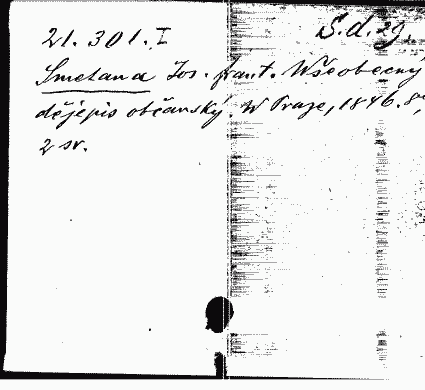 21.301.I
S.d.29.
Smetana Jos. frant. Wšeobecný
dějepis občanský. W Praze, 1846. 8°,
2 sv.